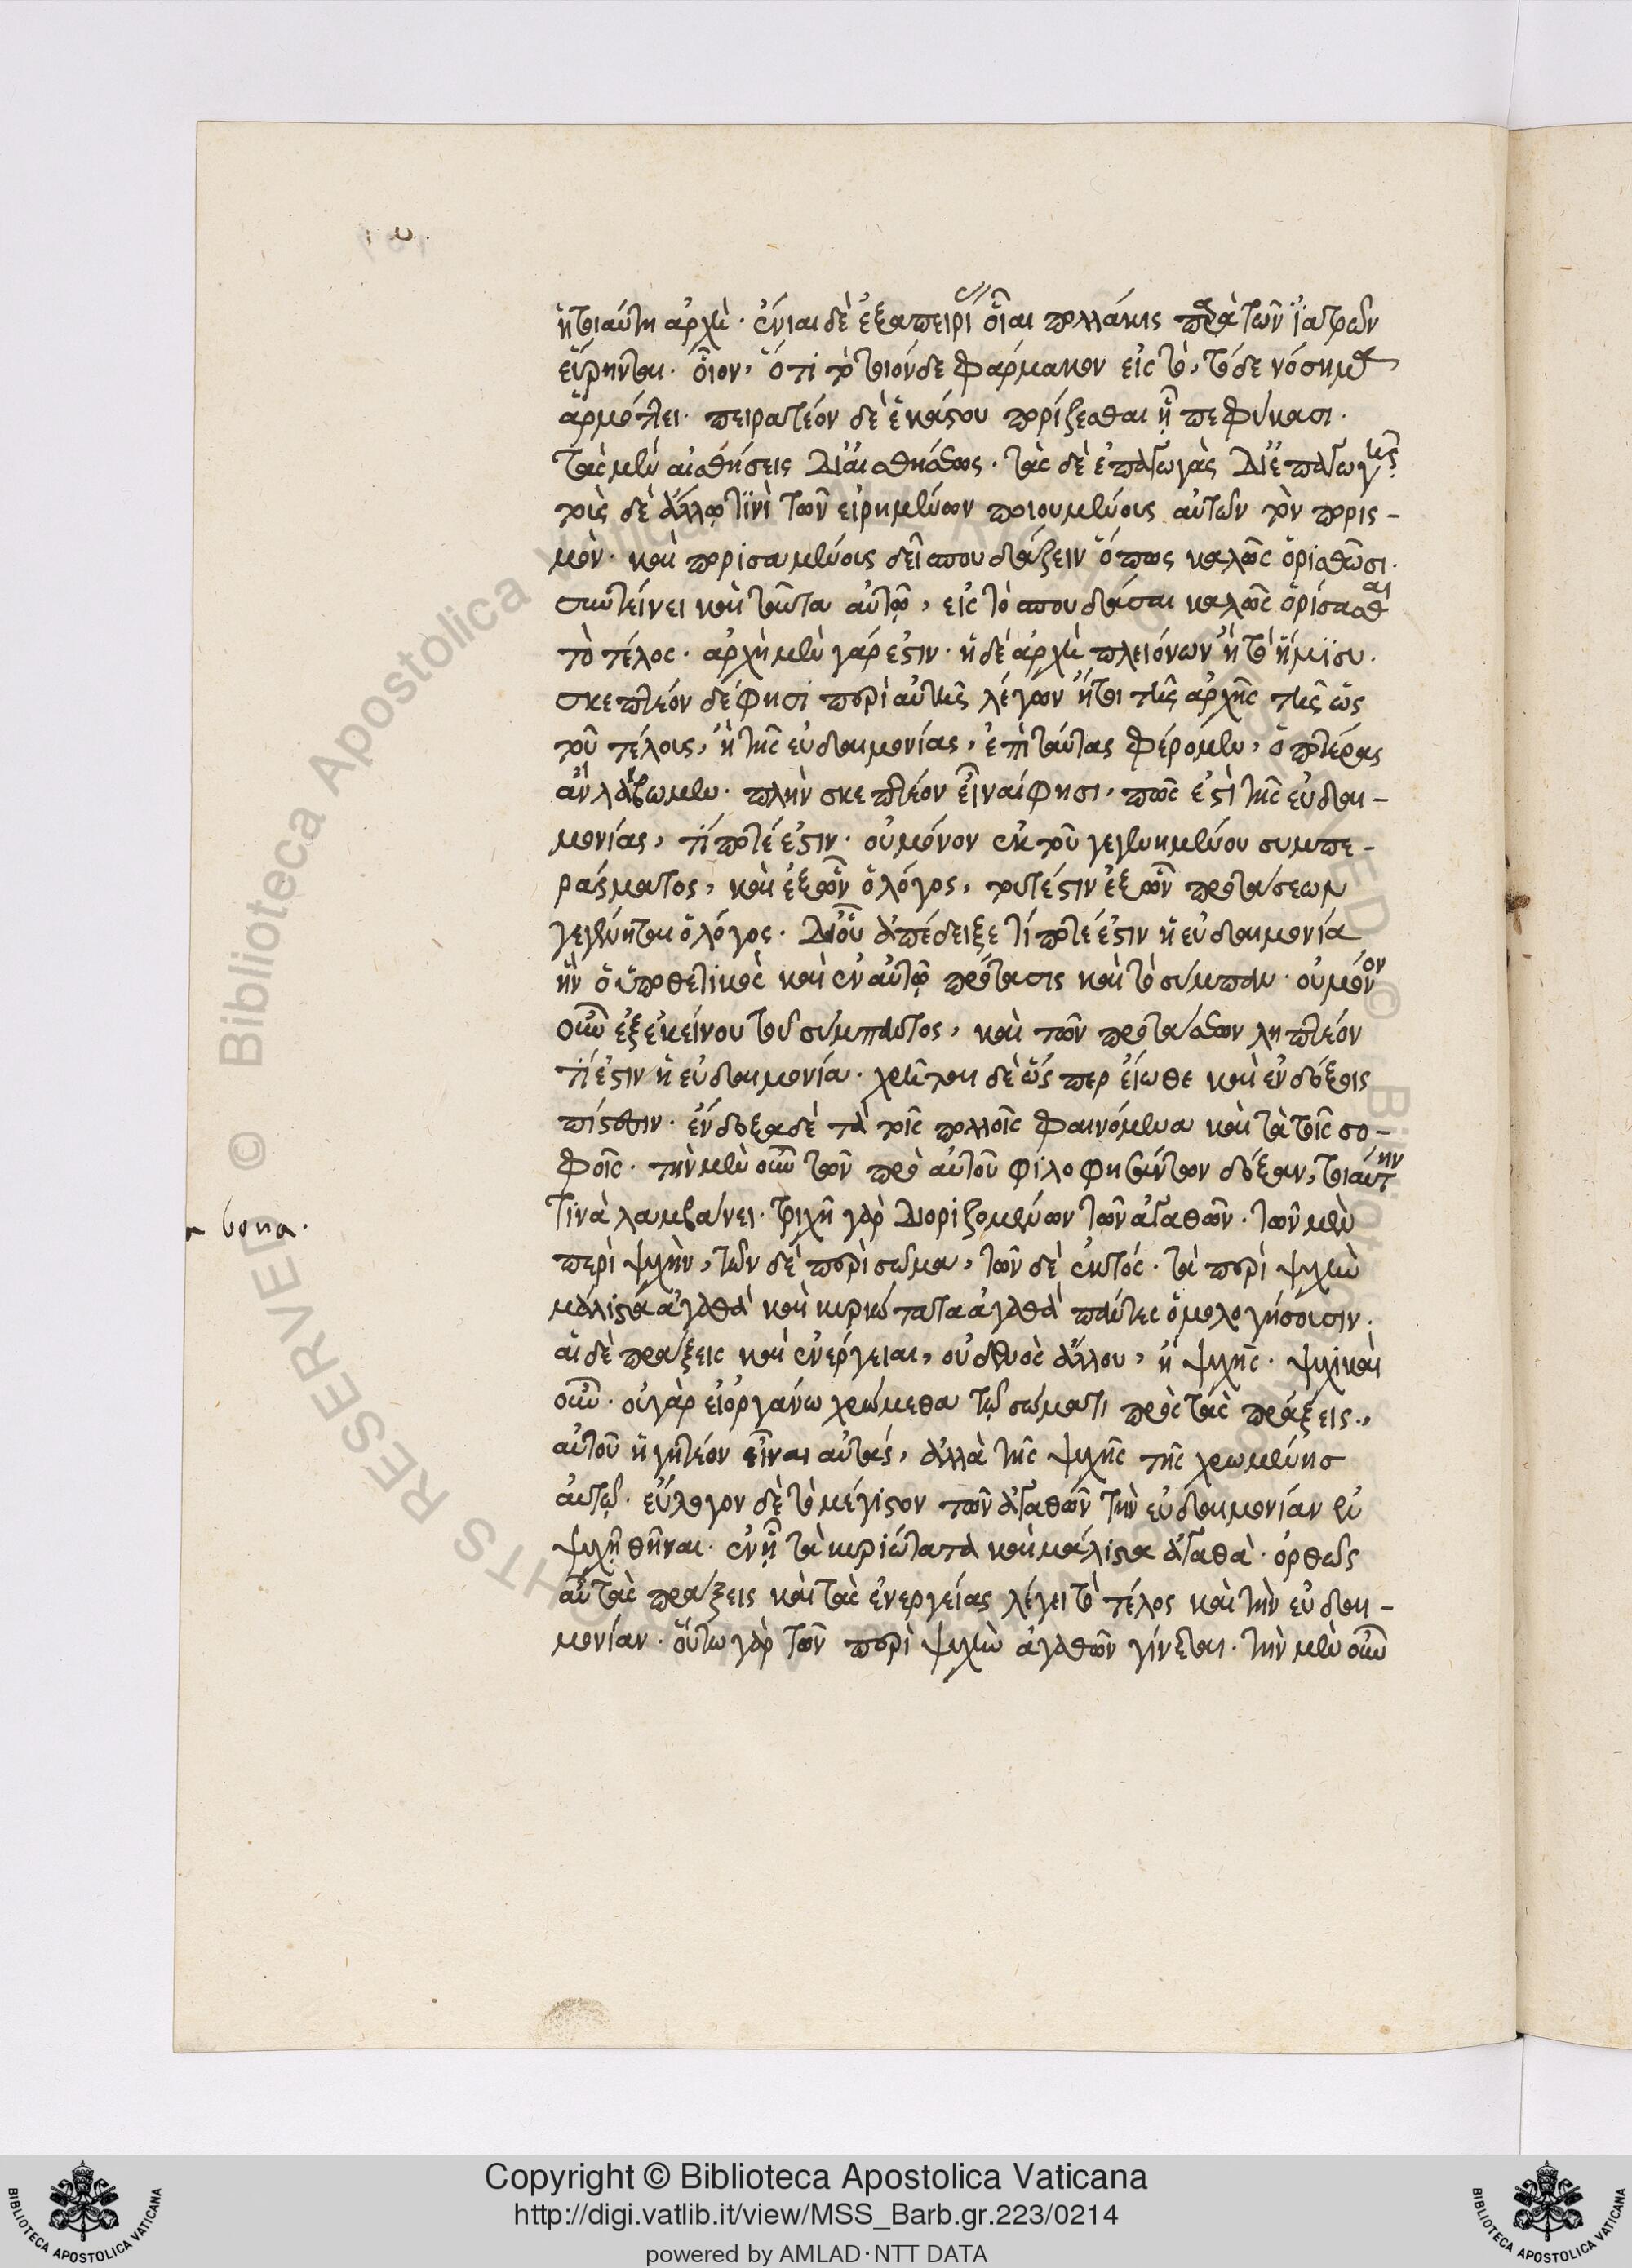 ἡ τοιαύτη ἀρχὴ. ἔνιαι δὲ ἐξ ἀπειρί οἷαι πολλάκις παρὰ τῶν ἰατρῶν
εὕρηνται. οἷον, ὅτι τὸ τοιόνδε φάρμακον εἰς τὸ, τόδε νόσημα
ἁρμόττει. πειρατέον δὲ ἑκάστου πορίζεσθαι ἧ πεφύκασι.
τὰς μὲν αἰσθήσεις δι' αἰσθήσεως. τὰς δὲ ἐπαγωγὰς δι' ἐπαγωγῆς
τοῖς δὲ ἄλλῳ τινὶ τῶν εἰρημένων ποιουμένοις αὐτῶν τὸν πορισ-
μὸν. καὶ πορισαμένοις δεῖ σπουδάζειν ὅπως καλῶς ὁρισθῶσι.
συντείνει καὶ ταῦτα αὐτῷ, εἰς τὸ σπουδάσαι καλῶς ὁρίσασθαι
τὸ τέλος. ἀρχὴ μὲν γάρ ἐστιν. ἡ δὲ ἀρχὴ πλειόνων ἢ τὸ ἥμισυ.
σκεπτέον δέ φησι περὶ αὐτῆς λέγων ἤτοι τῆς ἀρχῆς τῆς ὡς
τοῦ τέλους, ἢ τῆς εὐδαιμονίας, ἐπὶ ταύτας φέρομεν, ὁποτέρας
ἂν λάβωμεν. πλὴν σκεπτέον εἶναί φησι, πῶς ἐστὶ τῆς εὐδαι-
μονίας, τί ποτέ ἐστιν. οὐ μόνον ἐκ τοῦ γεγενημένου συμπε-
ράσματος, καὶ ἐξ ὧν ὁ λόγος, τουτέστιν ἐξ ὧν προτάσεων
γεγένηται ὁ λόγος. δι' οὗ ἀπέδειξε τί ποτέ ἐστιν ἡ εὐδαιμονία
ἦν ὁ ὑποθετικὸς καὶ ἐν αὐτῷ πρότασις καὶ τὸ σύμπαν. οὐ μόνον
οὖν ἐξ ἐκείνου τοῦ σύμπαντος, καὶ τῶν προτάσεων ληπτέον
τί ἐστιν ἡ εὐδαιμονία. χρῆται δὲ ὥσπερ εἴωθε καὶ ἐνδόξοις
πίστιν. ἔνδοξα δὲ τὰ τοῖς πολλοῖς φαινόμενα καὶ τὰ τοῖς σο-
φοῖς. τὴν μὲν οὖν τῶν πρὸ αὐτοῦ φιλοφησάντων δόξαν, τοιαύτην
τινὰ λαμβάνει. τριχῆ γὰρ διοριζομένων τῶν ἀγαθῶν. τῶν μὲν
bona.
περὶ ψυχὴν, τῶν δὲ περὶ σῶμα, τῶν δὲ ἐκτός. τὰ περὶ ψυχὴν
μάλιστα ἀγαθὰ καὶ κυριώτατα ἀγαθὰ πάντες ὁμολογήσουσιν.
αἱ δὲ πράξεις καὶ ἐνέργειαι, οὐδενὸς ἄλλου, ἢ ψυχῆς. ψυχικαὶ
οὖν. οὐ γὰρ εἰ ὀργάνω χρώμεθα τῷ σώματι πρὸς τὰς πράξεις.,
αὐτοῦ ἡγητέον εἶναι αὐτὰς, ἀλλὰ τῆς ψυχῆς τῆς χρωμένης
αὐτῷ. εὔλογον δὲ τὸ μέγιστον τῶν ἀγαθῶν τὴν εὐδαιμονίαν ἐν
ψυχῇ θῆναι. ἐν ᾗ τὰ κυριώτατα καὶ μάλιστα ἀγαθὰ. ὀρθῶς
αὖ τὰς πράξεις καὶ τὰς ἐνεργείας λέγει τὸ τέλος καὶ τὴν εὐδαι-
μονίαν. οὕτω γὰρ τῶν περὶ ψυχὴν ἀγαθῶν γίνεται. τὴν μὲν οὖν
Copyright © Biblioteca Apostolica Vaticana
http://digi.vatlib.it/view/MSS_Barb.gr.223/0214
powered by AMLAD·NTT DATA